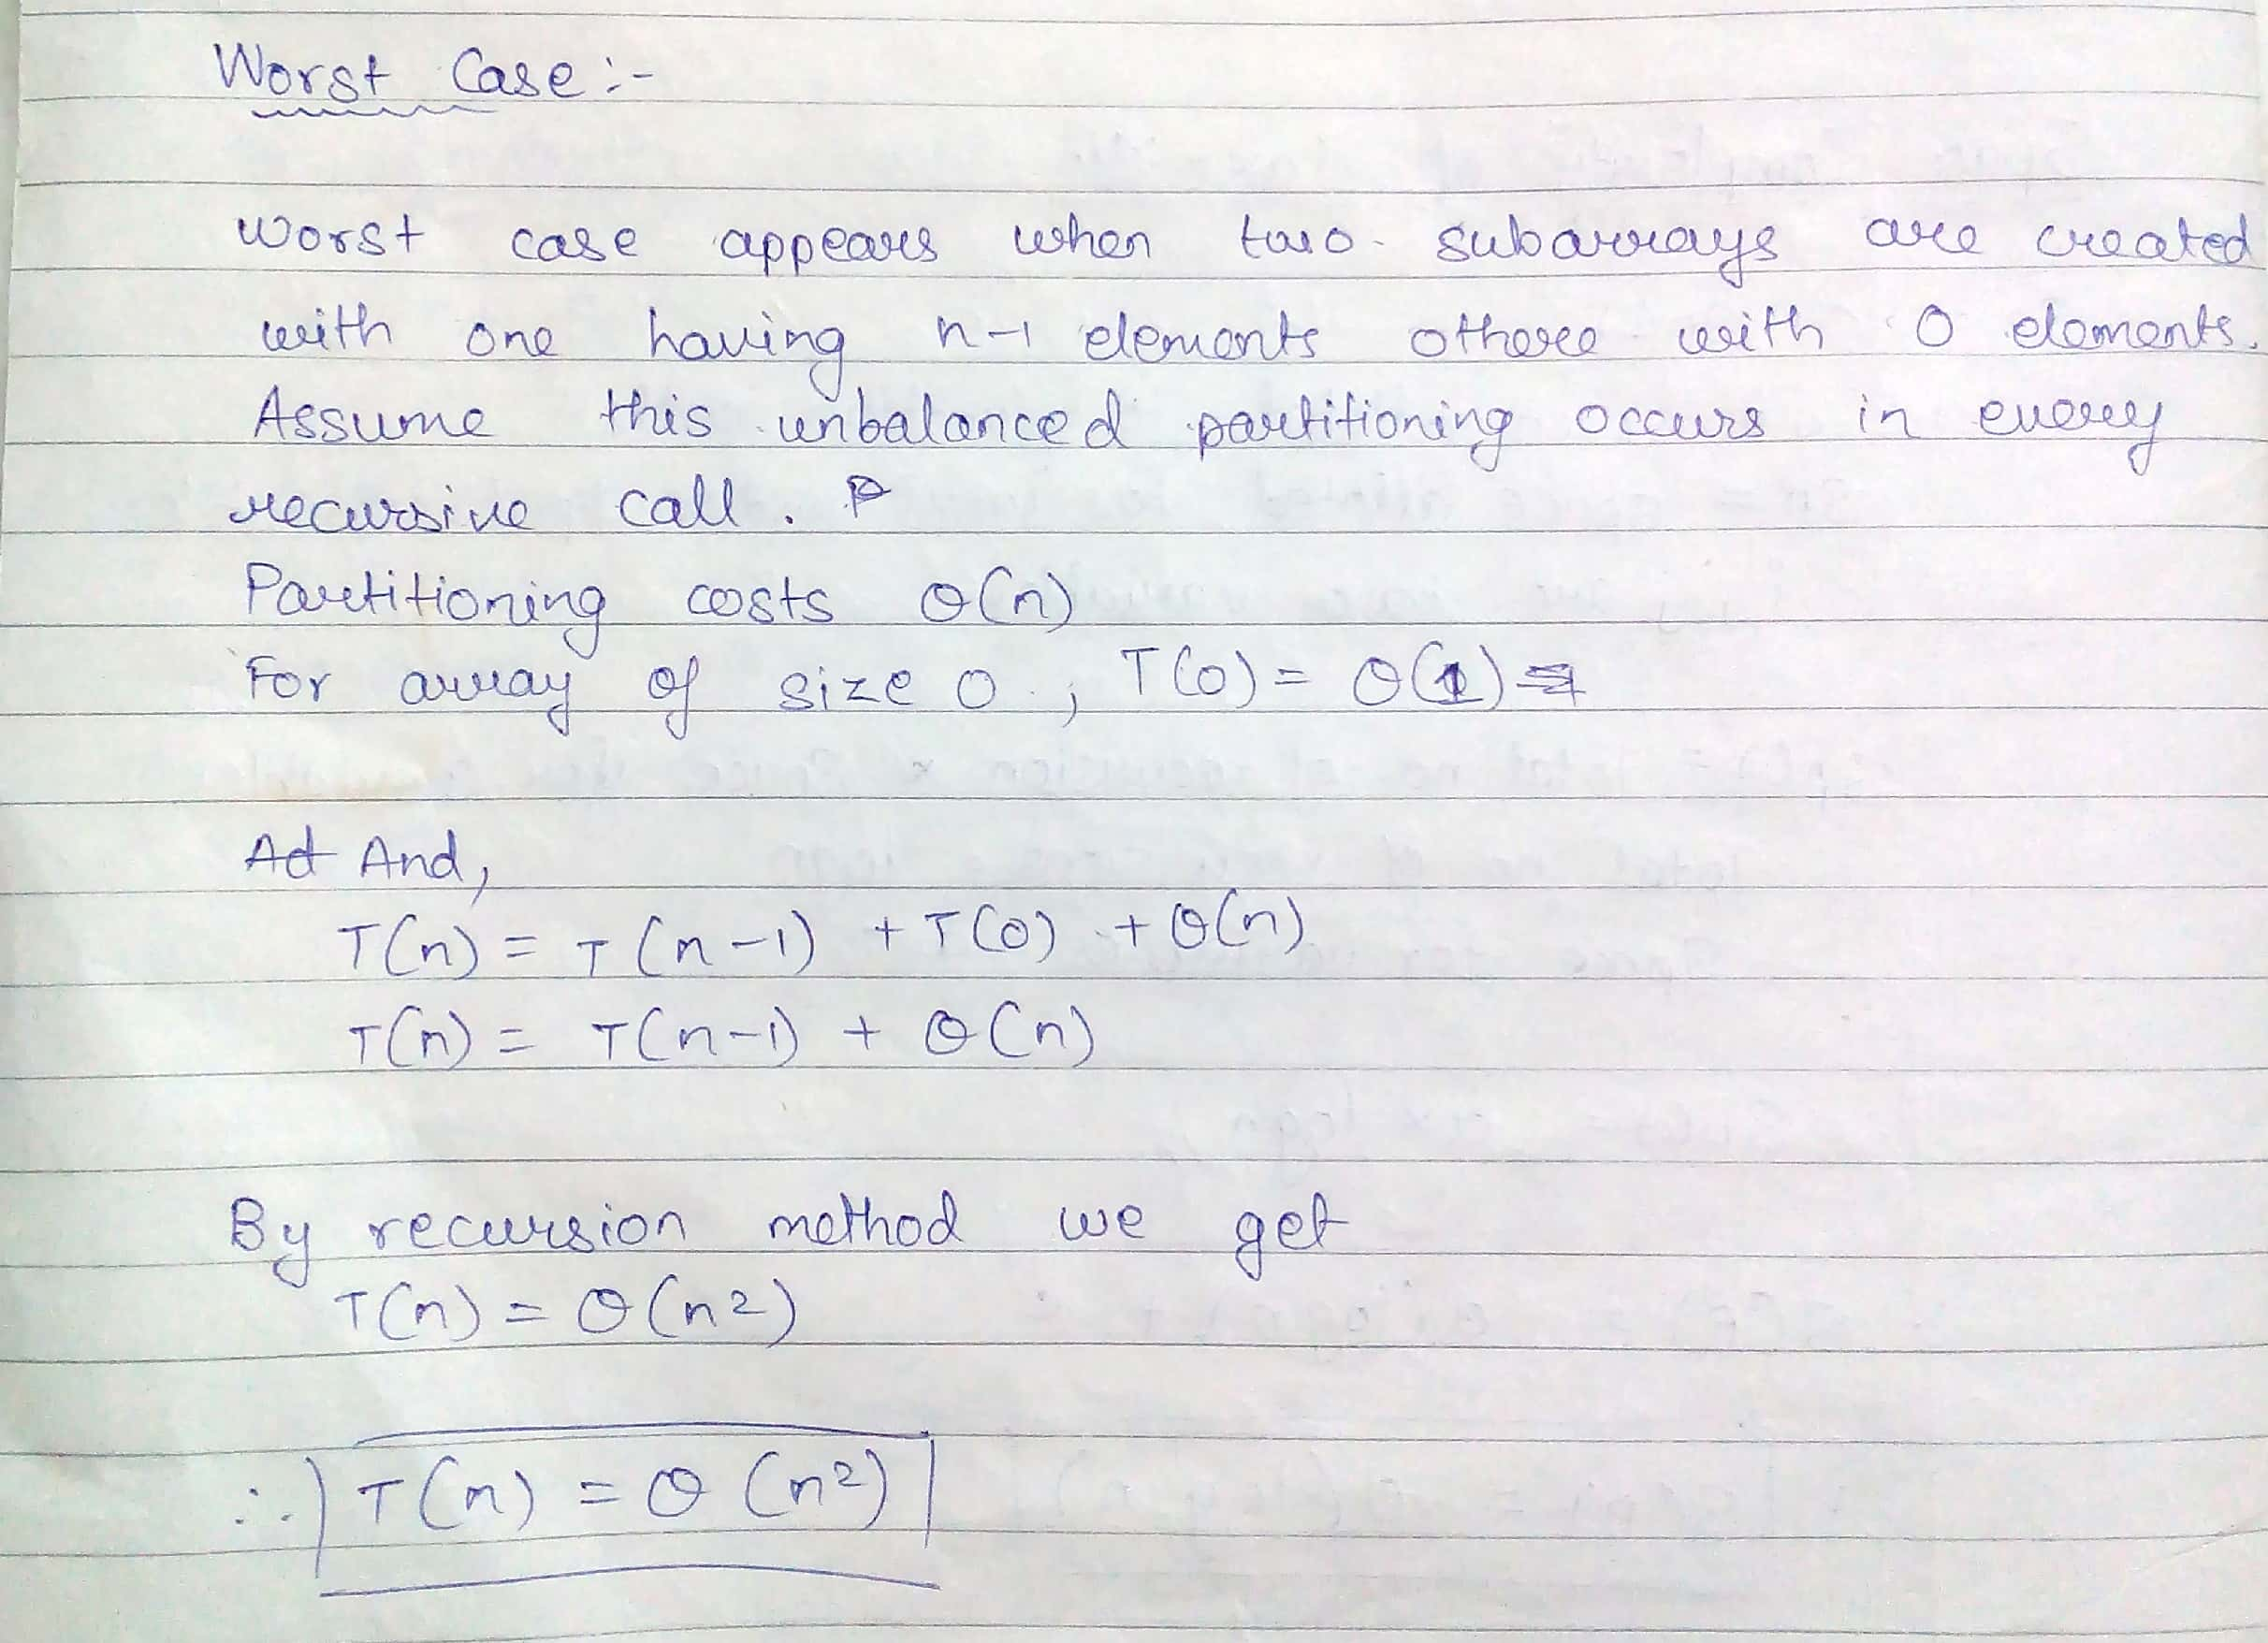 Worst Case :-
Worst case appears when two subarrays are created
with one having n-1 elements other with 0 elements.
Assume this unbalanced partitioning occurs in every
recursive call. P
Partitioning costs O(n)
For array of size 0 ; T(0) = O(1) =
Ad And,
T(n) = T(n-1) + T(0) + O(n)
T(n) = T(n-1) + O(n)
By recursion method we get
T(n) = O(n²)
∴ T(n) = O(n²)